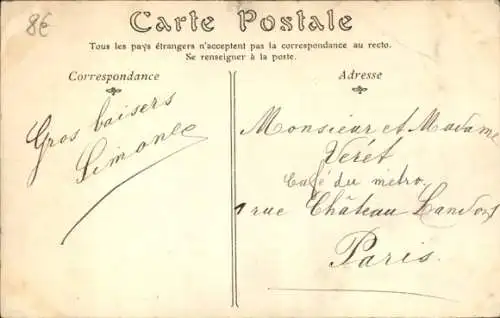 8€
Carte Postale
Tous les pays étrangers n'acceptent pas la correspondance au recto.
Se renseigner à la poste.
Correspondance
Adresse
Gros baisers
Simonee
Monsieur et Madame
Véret
Café du métro,
1 rue Château Landon
Paris.